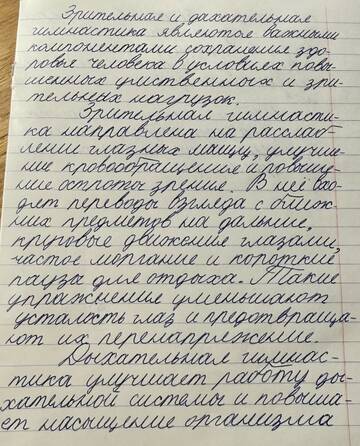 Зрительная и дахательная
гимнастика являются важными
компонентами сохранения здо-
ровье человека в условиях повы-
шенных умственных и зри-
тельных нагрузок.
Зрительная гимнасти-
ка направлена на расслаб-
лении глазных мышц, улучше-
ние кровообращение и повыше-
ние остроты зрение. В неё вхо-
дят переводы взгляда с ближ-
них предметов на дальние,
круговые движение глазами,
частое моргание и короткие
пауза для отдыха. Такие
упражнения уменьшают
усталость глаз и предотвраща-
ют их перенапряжение.
Дыхательная гимнас-
тика улучшает работу ды-
хательной системы и повыша-
ет насыщение организма